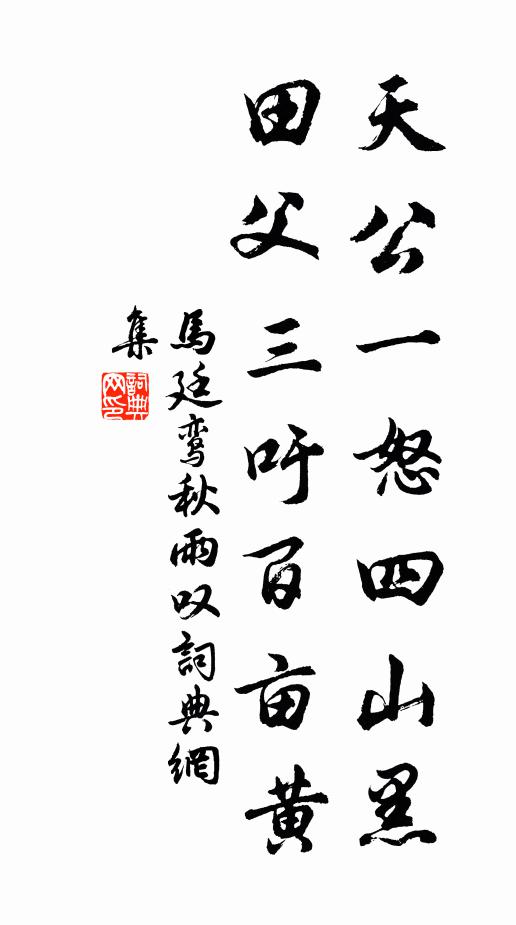 天公一怒四山黑
田父三吁百亩黄
馬廷鸾秋雨叹詞典網
集
詞典网印